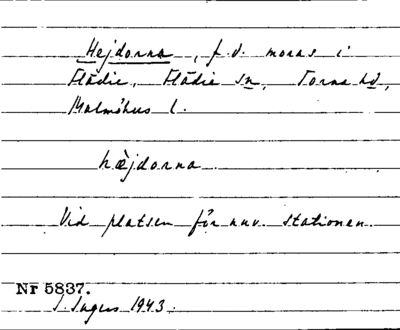 Hejdorna, f.d. moras i
Flädie, Flädie sn, Torna hd,
Malmöhus l.
hæ̀jdorna
Vid platsen för nuv. stationen.
Nr 5837.
I. Ingers 1943.